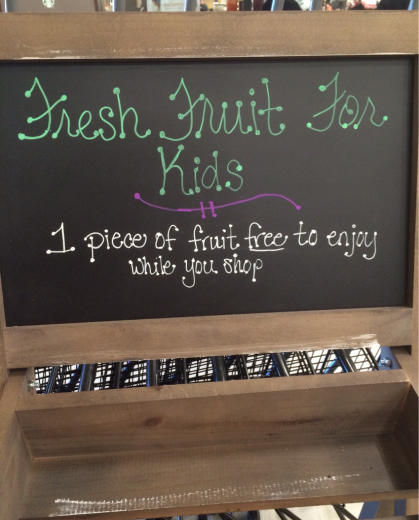 Fresh Fruit For
Kids
1 piece of fruit free to enjoy
while you shop